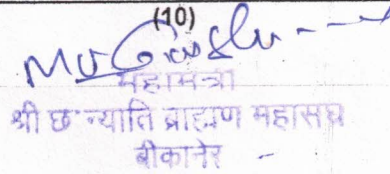 (10)
महामंत्री
श्री छ न्याति ब्राह्मण महासंघ
बीकानेर